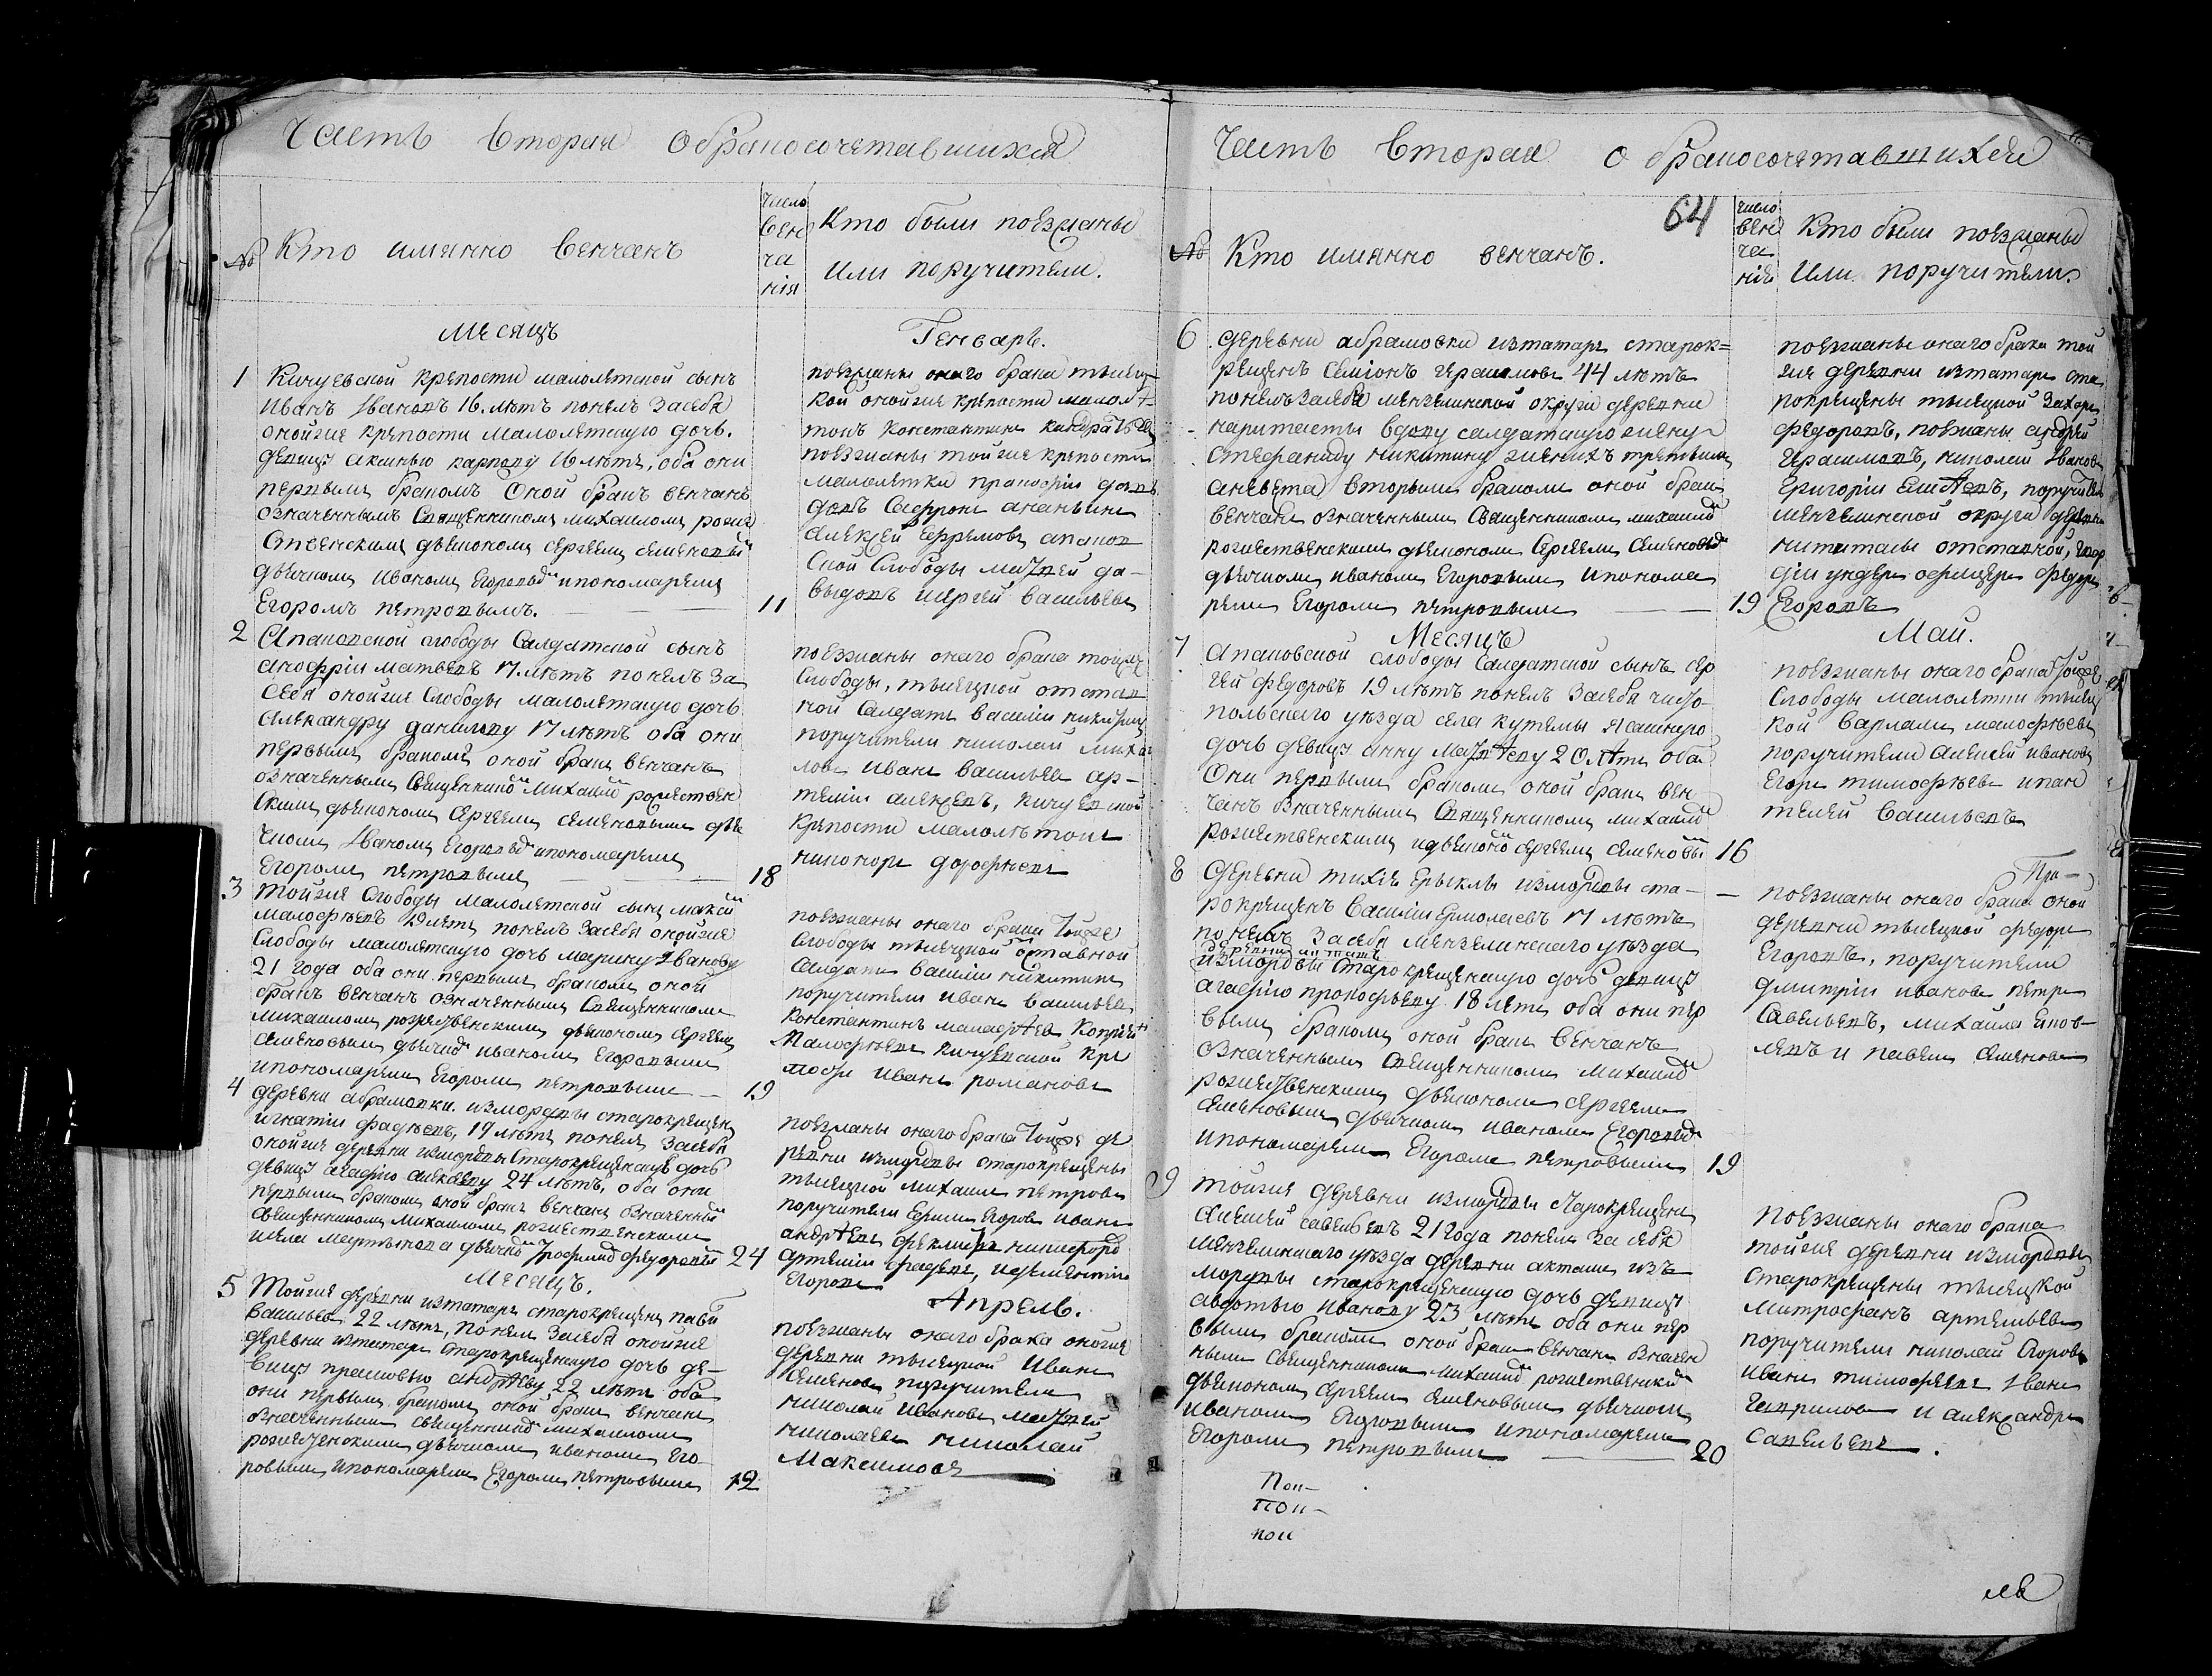 Часть вторая о бракосочетавшихся
№ Кто имянно венчанъ
число
вен
ча
нія
Кто были поезжаны
или поручители.
Месяцъ
Генварь.
1
Кичуевской крепости малолетской сынъ
Иванъ Ивановъ 16. летъ понелъ засебя
онойже крепости малолетскую дочь.
девицу акинью карпову 16 летъ, оба они
первымъ бракомъ оной бракъ венчанъ
означеннымъ священникомъ михаиломъ рожде
ственскимъ дьякономъ сергеемъ семеновы
дьячкомъ Иваномъ Егоровы ипономаремъ
Егоромъ петровымъ.
11
поезжаны онаго брака тысяц
кой онойже крепости малол
токъ константинъ кандратьев
поезжаны тойже крепости
малолетки
софронъ ананьинъ
алексей Ефремовъ апанов
ской слободы матвей да-
выдовъ исергей васильевъ
2
Апановской слободы салдатской сынъ
анофріи матвевъ 17 летъ понелъ за
себя онойже слободы малолетскую дочь
александру данилову 17 летъ оба они
первымъ бракомъ оной бракъ венчанъ
означеннымъ священнико михаило рожествен
скимъ дьякономъ сергеемъ семеновымъ дья
чкомъ Иваномъ Егоровы ипономаремъ
Егоромъ петровымъ
18
поезжаны онаго брака тойже
слободы, тысяцкой отстав
ной салдатъ василіи никитинъ
поручители николаи михаи
ловъ иванъ васильевъ ар-
темии алексевъ, кичуевской
крепости малолетокъ
никоноръ дорофеевъ
3
тойже слободы малолетской сынъ макси
малофеевъ 19 летъ понелъ засебя онойже
слободы малолетскую дочь марину Иванову
21 года оба они первымъ бракомъ оной
бракъ венчанъ означеннымъ священникомъ
михаиломъ рождественскимъ дьякономъ сергеемъ
семеновымъ дьячко иваномъ Егоровымъ
ипономаремъ Егоромъ петровымъ
19
поезжаны онаго брака тойже
слободы тысяцкой отставной
салдатъ василіи никитинъ
поручители иванъ васильевъ
константинъ
малофеевъ кичуевской кре
пости иванъ романовъ
4
деревни абрамовки измордвы старокрещенъ
игнатіи фадеевъ, 19 летъ понелъ засебя
онойже деревни измордвы старокрещенскую дочь
девицу агафию алексеву 24 летъ, оба они
первымъ бракомъ оной бракъ венчанъ означенны
священникомъ михаиломъ рожественскимъ
села мартынова дьячко трофимо федоровы
24
поезжаны онаго брака тойже де
ревни измордвы старокрещены
тысяцкой михаилъ петровъ
поручители Ефимъ Егоровъ иванъ
андреевъ никифоръ
артемии фадеевъ,
Егоровъ
Месяцъ.
Апрель.
5
тойже деревни изтатаръ старокрещенъ паве
васильевъ 22 летъ, понелъ засебя онойже
деревни изтатаръ старокрещенскую дочь де-
вицу прасковью андрееву 22 летъ оба
они первымъ бракомъ оной бракъ венчанъ
означеннымъ священнико михаиломъ
рожественскимъ дьячкомъ иваномъ Его-
ровымъ ипономаремъ Егоромъ петровымъ
12
поезжаны онаго брака онойже
деревни тысяцкой Иванъ
семеновъ поручители
николай Ивановъ матвей
николаевъ николай
Максимовъ
Часть вторая о бракосочетавшихся
64
№ Кто имянно венчанъ.
число
вен
ча
нія
Кто были поезжаны
или поручители.
6
деревни абрамовки изтатаръ старок=
рещенъ семіонъ герасимовъ 44 летъ
понелъ засебя мензелинской округи деревни
вдову салдатскую жену
стефаниду никитину женихъ третьимъ
аневеста вторымъ бракомъ оной бракъ
венчанъ означеннымъ священникомъ михаило
рожественскимъ дьякономъ сергеемъ семеновы
дьячкомъ иваномъ Егоровымъ ипонома
ремъ Егоромъ петровымъ
19
поезжаны онаго брака той
же деревни изтатаръ ста
рокрещены тысяцкой захаръ
федоровъ, поезжаны андрей
герасимовъ, николаи Ивановъ
григоріи поручители
мензелинской округи деревни
отставной,
ундеръ офицеръ федоръ
Егоровъ
Месяцъ
Май.
7
Апановской слободы салдатской сынъ сер
гей федоровъ 19 летъ понелъ засебя чисто-
польскаго уезда села кутемы ясашную
дочь девицу анну матвеву 20 летъ оба
они первымъ бракомъ оной бракъ вен
чанъ означеннымъ священникомъ михаило
рожественскимъ идьяконо сергеемъ семеновы
16
поезжаны онаго брака тойже
слободы малолетки тысяц
кой варламъ малофеевъ
поручители алексей ивановъ
Егоръ тимофеевъ ипан
телей васильевъ
8
деревни тихіе Ерыклы измордвы ста-
рокрещенъ василіи ермолаевъ 17 летъ
понелъ засебя мензелинскаго уезда
деревни акташъ
измордвы старокрещенскую дочь девицу
агафию прокофьеву 18 летъ оба они пер
вымъ бракомъ оной бракъ венчанъ
означеннымъ священникомъ михаило
рожественскимъ дьякономъ сергеемъ
семеновымъ дьячкомъ иваномъ Егоровы
ипономаремъ Егоромъ петровымъ
19
поезжаны онаго брака оной
деревни тысяцкой федоръ
Егоровъ, поручители
дмитріи ивановъ петръ
савельевъ, михаила
и павелъ семеновъ
9
тойже деревни измордвы старокрещенъ
алексей савельевъ 21 года понелъ за себя
мензелинскаго уезда деревни акташъ изъ
мордвы старокрещенскую дочь девицу
авдотью иванову 23 летъ оба они пер
вымъ бракомъ оной бракъ венчанъ означен
нымъ священникомъ михаило рожественски
дьякономъ сергеемъ семеновымъ дьячкомъ
иваномъ Егоровымъ ипономаремъ
Егоромъ петровымъ
20
поезжаны онаго брака
тойже деревни измордвы
старокрещены тысяцкой
митрофанъ артемьевъ
поручители николай Егоровъ
иванъ тимофеевъ Иванъ
гавриловъ и александръ
савельевъ.